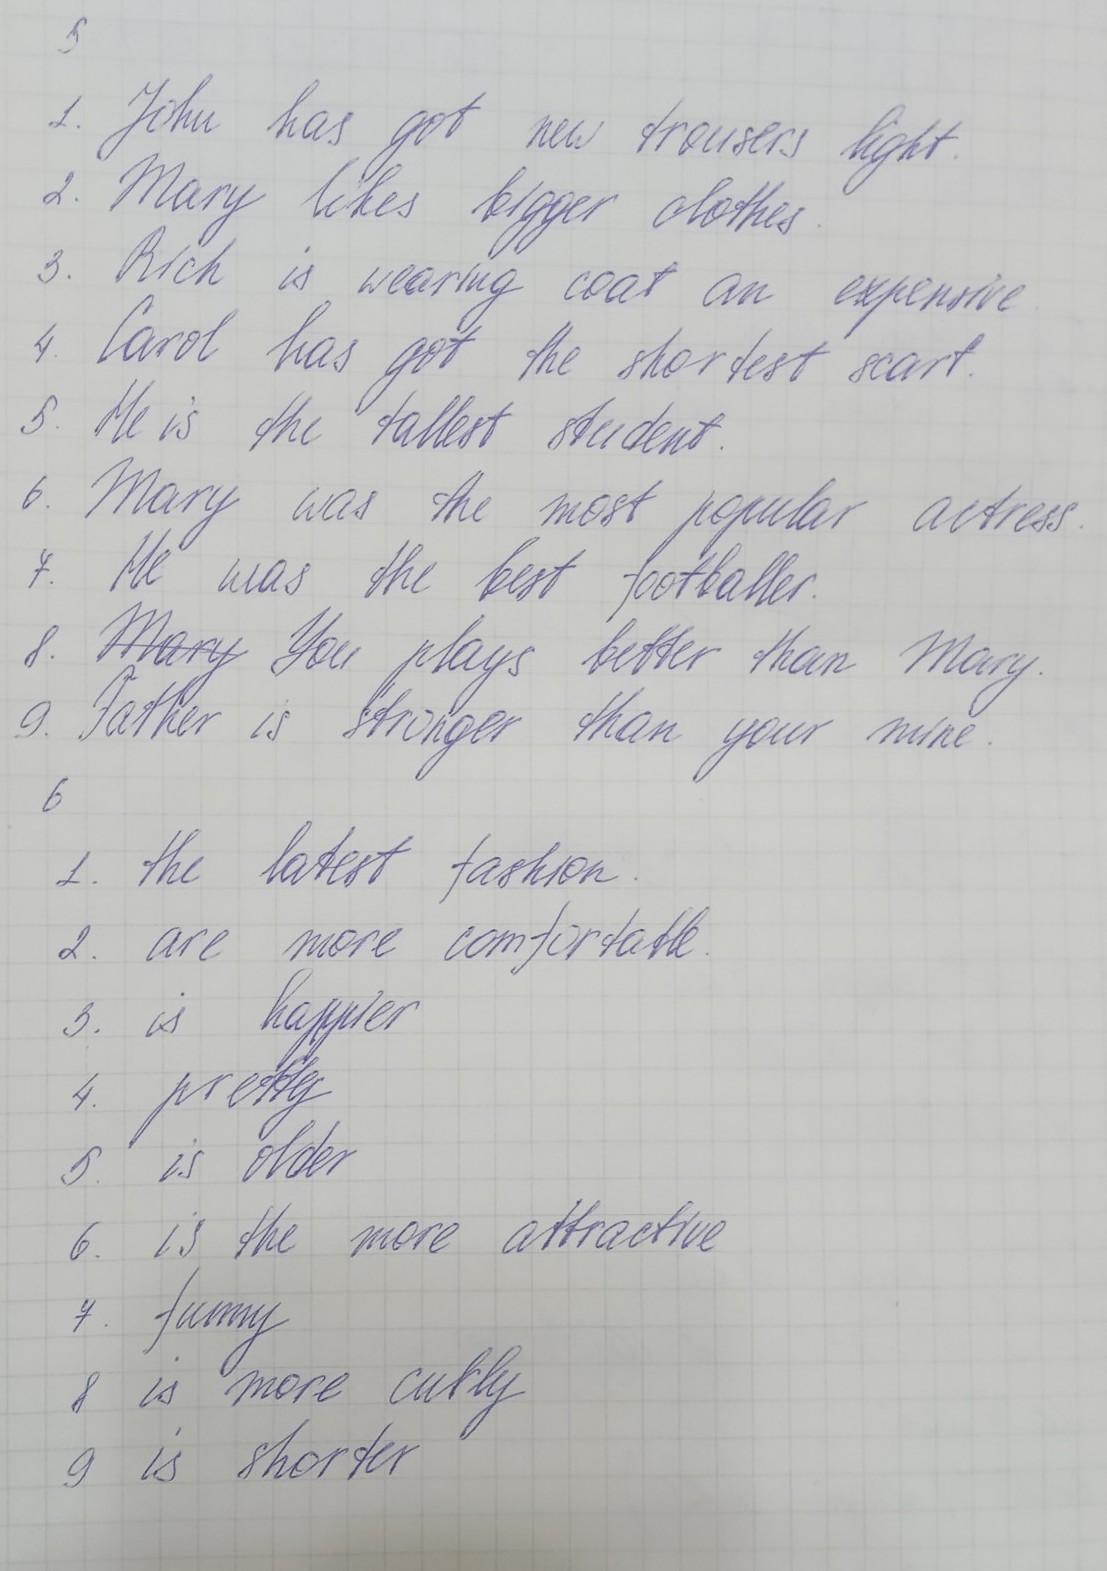 5
1. John has got new trousers light.
2. Mary likes bigger clothes.
3. Rich is wearing coat an expensive.
4. Carol has got the shortest scarf.
5. He is the tallest student.
6. Mary was the most popular actress.
7. He was the best footballer.
8. Mary You plays better than Mary.
9. Father is stronger than your mine.
6
1. the latest fashion.
2. are more comfortable.
3. is happier
4. pretty
5. is older
6. is the more attractive
7. funny
8 is more curly
9 is shorter